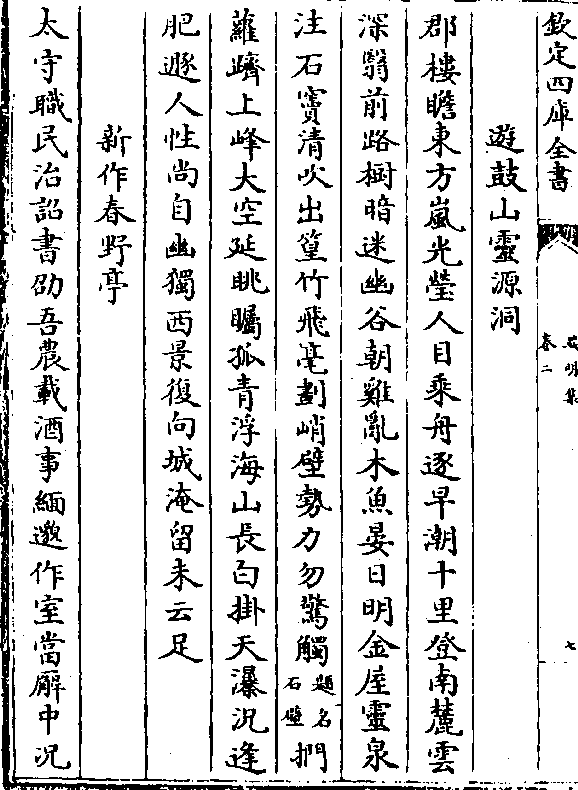 欽定四庫全書
明集
卷二
七
遊鼓山靈源洞
郡樓瞻東方嵐光瑩人目乘舟逐早潮十里登南麓雲
深翳前路樹暗迷幽谷朝雞亂木魚晏日明金屋靈泉
注石竇清吹出篁竹飛毫劃峭壁勢力勿驚觸題名石壁捫
蘿躋上峰大空延眺矚孤青浮海山長白掛天瀑況逢
肥遯人性尚自幽獨西景復向城淹留未云足
新作春野亭
太守職民治詔書勸吾農載酒事緬邈作室當廨中況